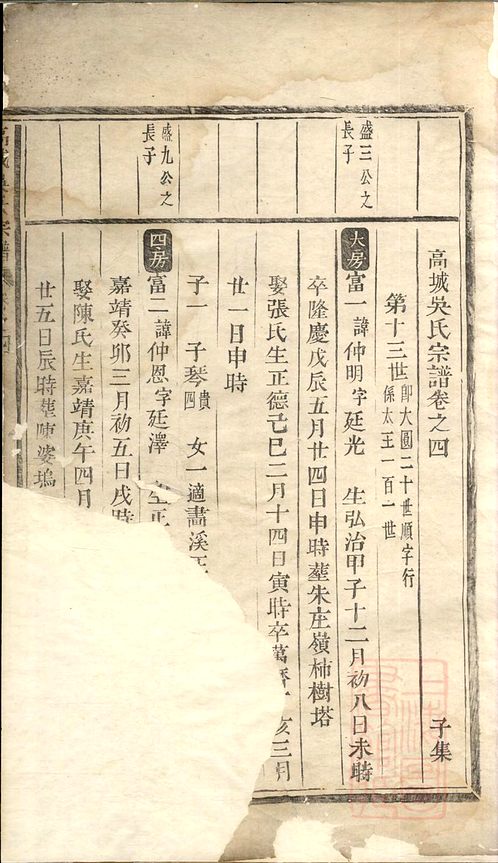 高城吳氏宗譜卷之四 子集
第十三世 即大園二十世順字行
係太王一百一世
盛三公之
長子
大房 富一諱仲明字廷光 生弘治甲子十二月初八日未時
卒隆慶戊辰五月廿四日申時塟朱庄嶺柿樹塔
娶張氏生正德己巳二月十四日寅時卒萬 三月
廿一日申時
子一 子琴 貴四 女一適畵溪
盛九公之
長子
四房 富二諱仲恩字廷澤
嘉靖癸卯三月初五日戌時
娶陳氏生嘉靖庚午四月
廿五日辰時塟陳婆塢